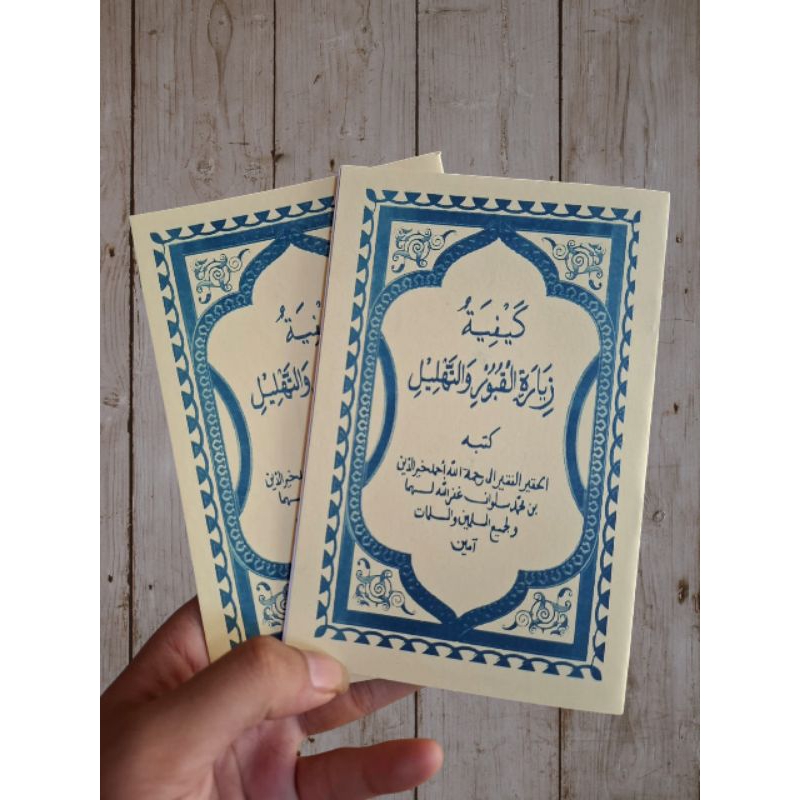 كَيْفِيَةُ
زِيَارَةِ الْقُبُوْرِ وَالتَّهْلِيْلِ
كتبه
الحقير الفقير الى رحمة الله أحمد خير الدين
بن محمد سلوان غفر الله لهما
ولجميع المسلمين والمسلمات
آمين
وَالتَّهْلِيْلِ